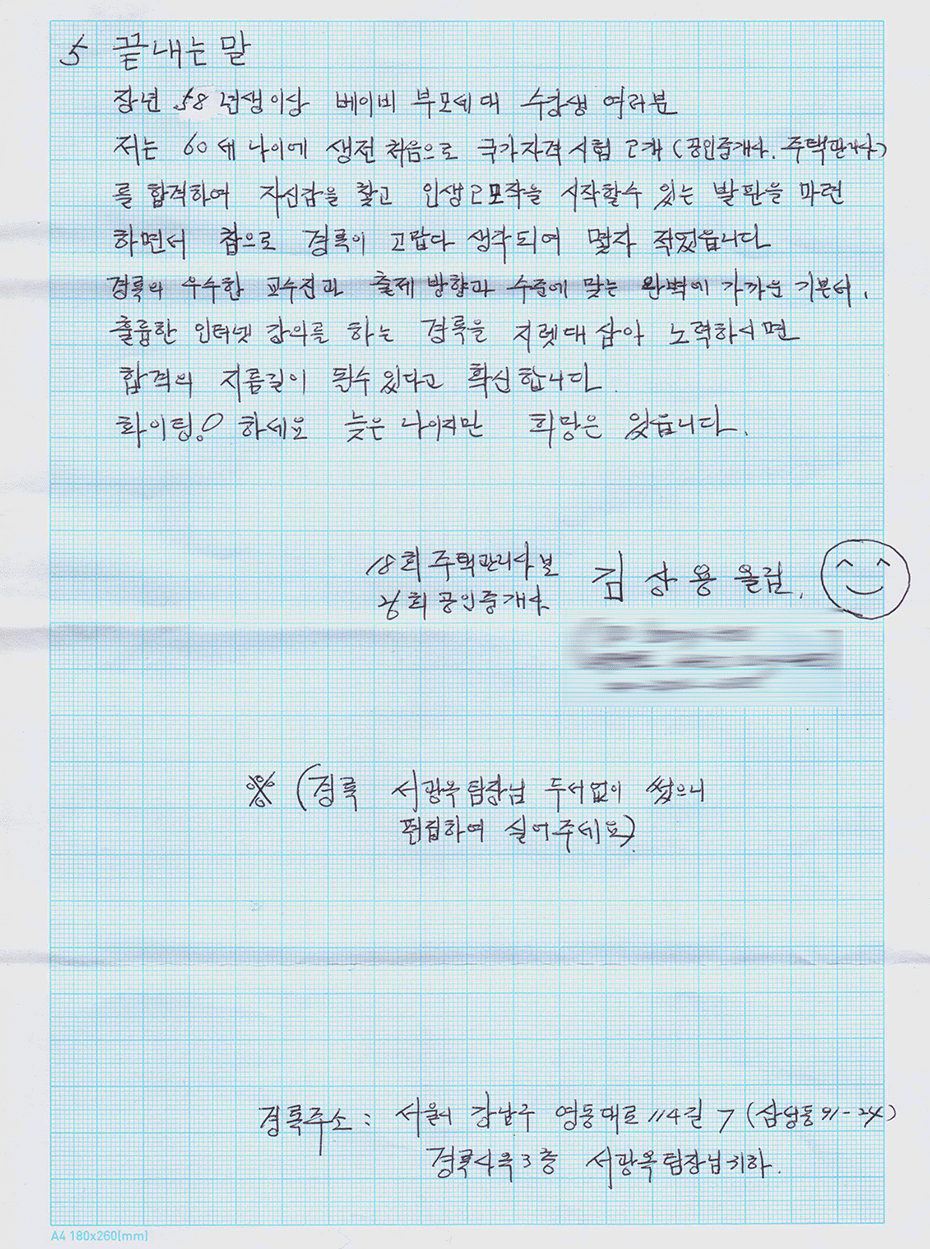 5 끝내는 말
장년 58년생이상 베이비 부모세대 수강생 여러분
저는 60세 나이에 생전 처음으로 국가자격시험 2개 (공인중개사. 주택관리사)
를 합격하여 자신감을 찾고 인생2모작을 시작할수 있는 발판을 마련
하면서 참으로 경록이 고맙다 생각되여 몇자 적었읍니다
경록의 우수한 교수진과 출제 방향과 수준에 맞는 완벽에 가까운 기본서,
훌륭한 인터넷 강의를 하는 경록을 지렛대 삼아 노력하시면
합격의 지름길이 될수있다고 확신합니다.
화이팅! 하세요 늦은 나이지만 희망은 있읍니다.
18회 주택관리사보 김상용 올림.
26회 공인중개사
※ (경록 서광옥팀장님 두서없이 썼으니
편집하여 실어주세요)
경록주소 : 서울시 강남구 영동대로 114길 7 (삼성동 91-24)
경록사옥 3층 서광옥팀장님귀하.
A4 180x260(mm)